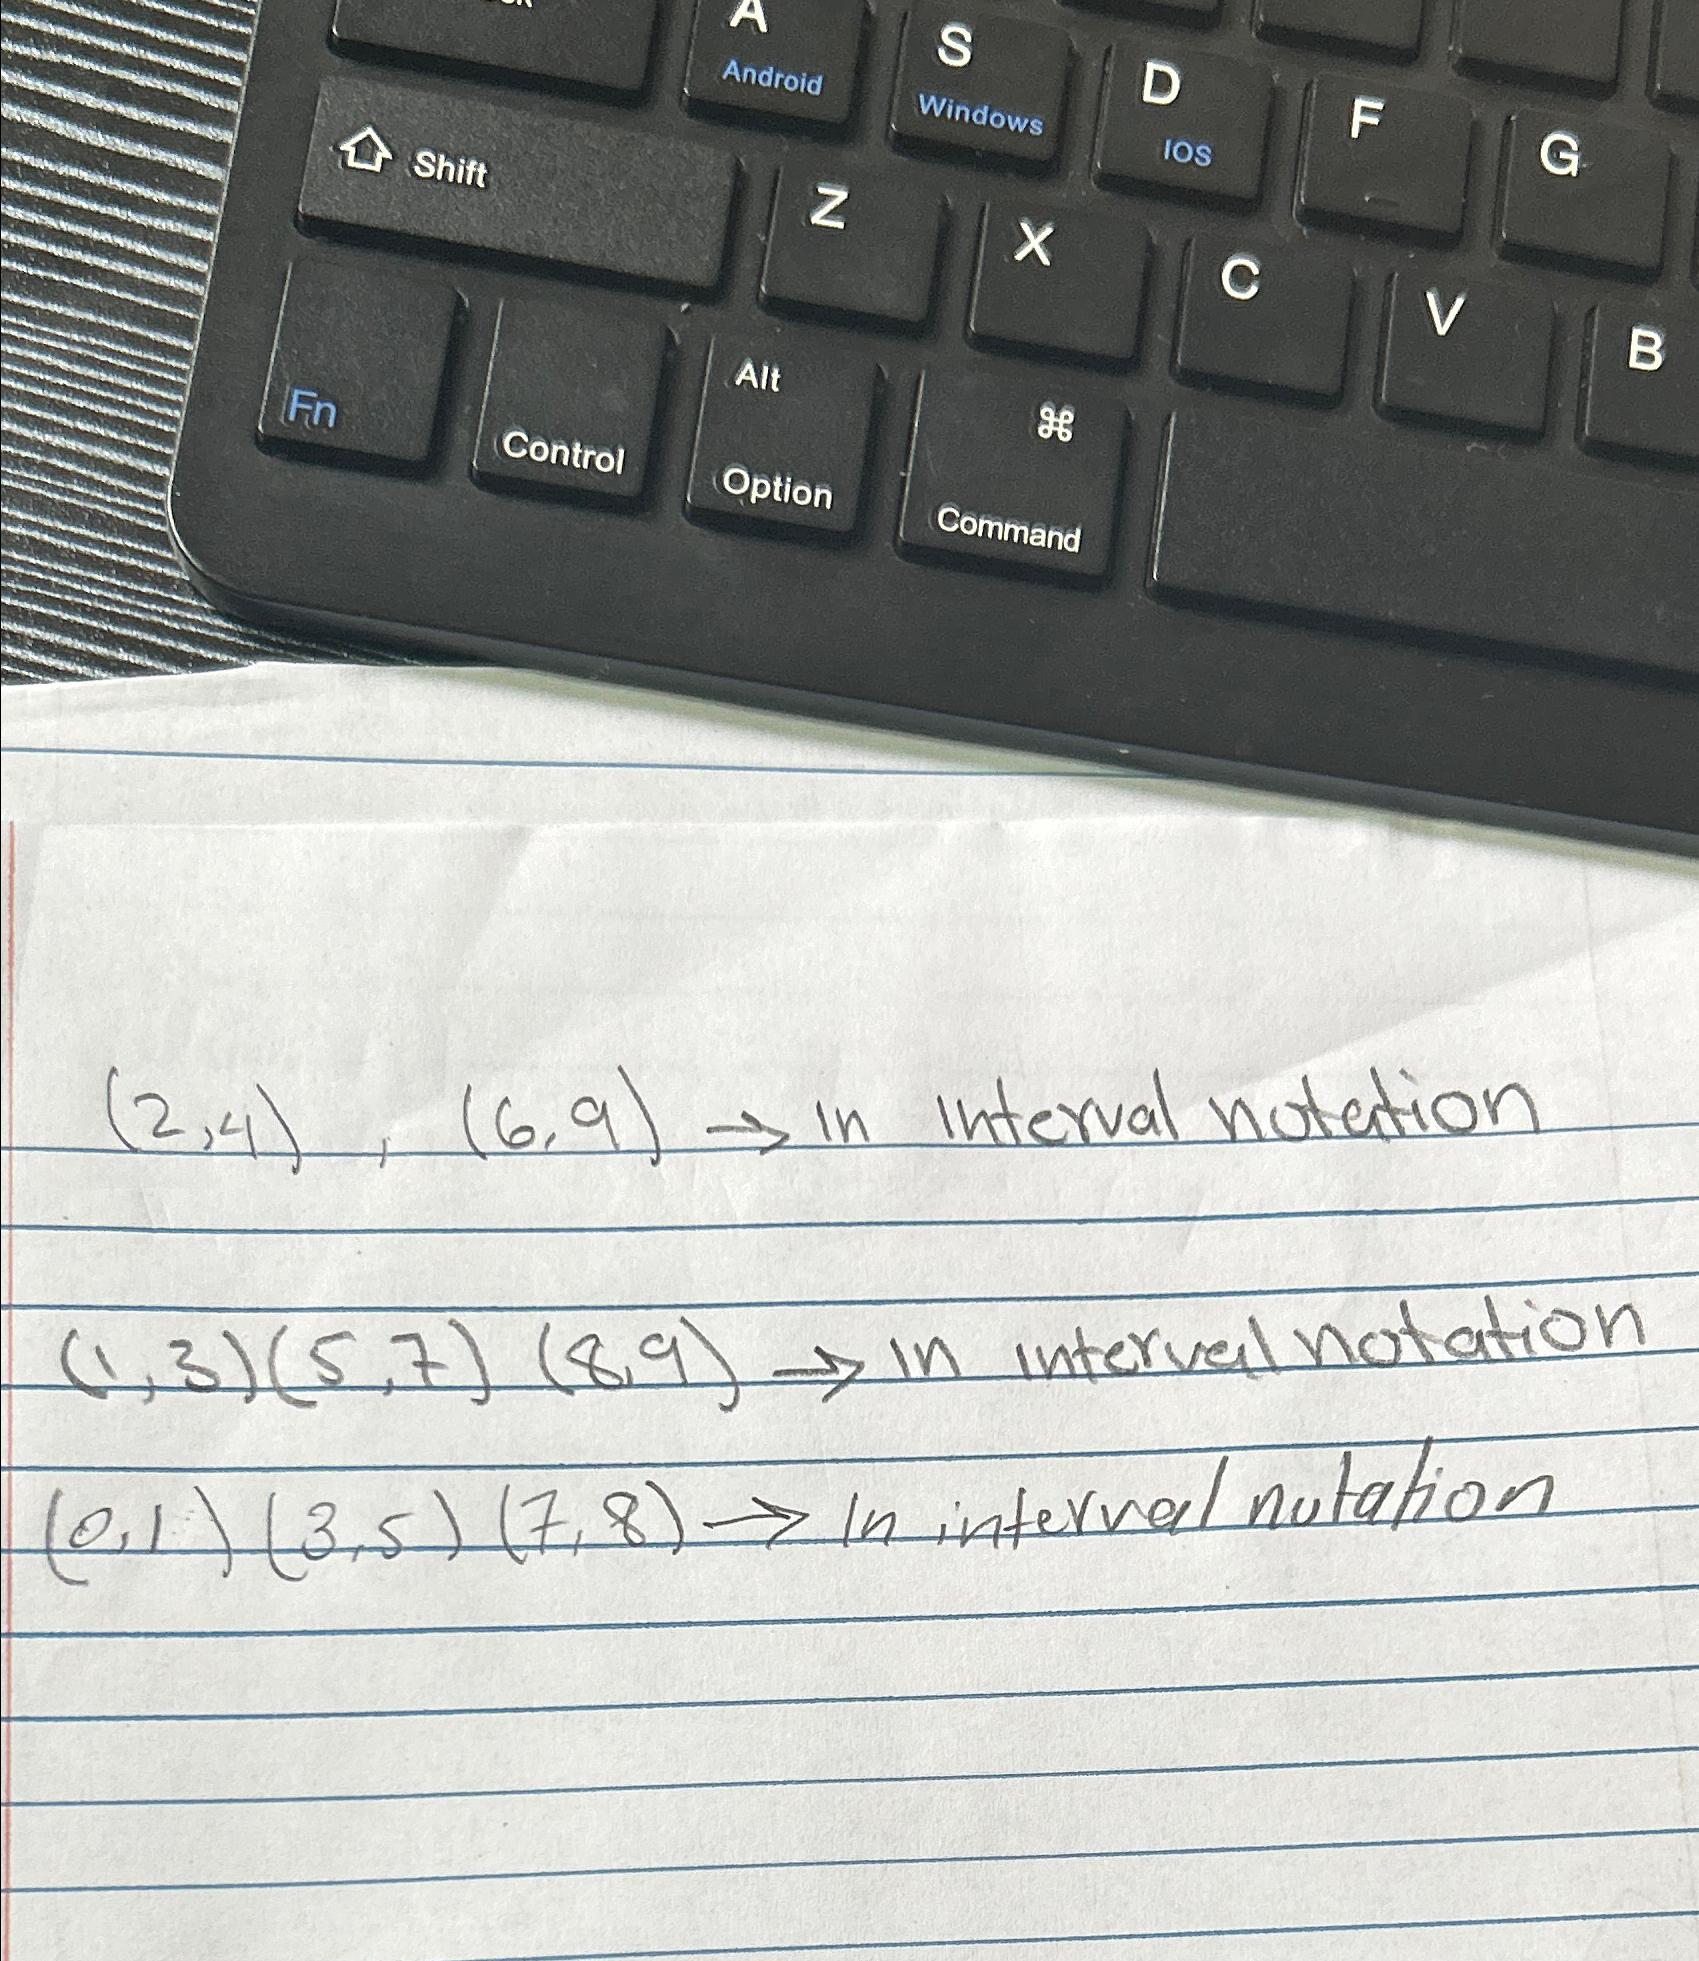 A
Android
S
Windows
D
IOS
F
G
Shift
Z
X
C
V
B
Fn
Control
Alt
Option
⌘
Command
(2,4) , (6,9) → in interval notation
(1,3)(5,7) (8,9) → in interval notation
(0,1) (3,5) (7,8) → in interval notation